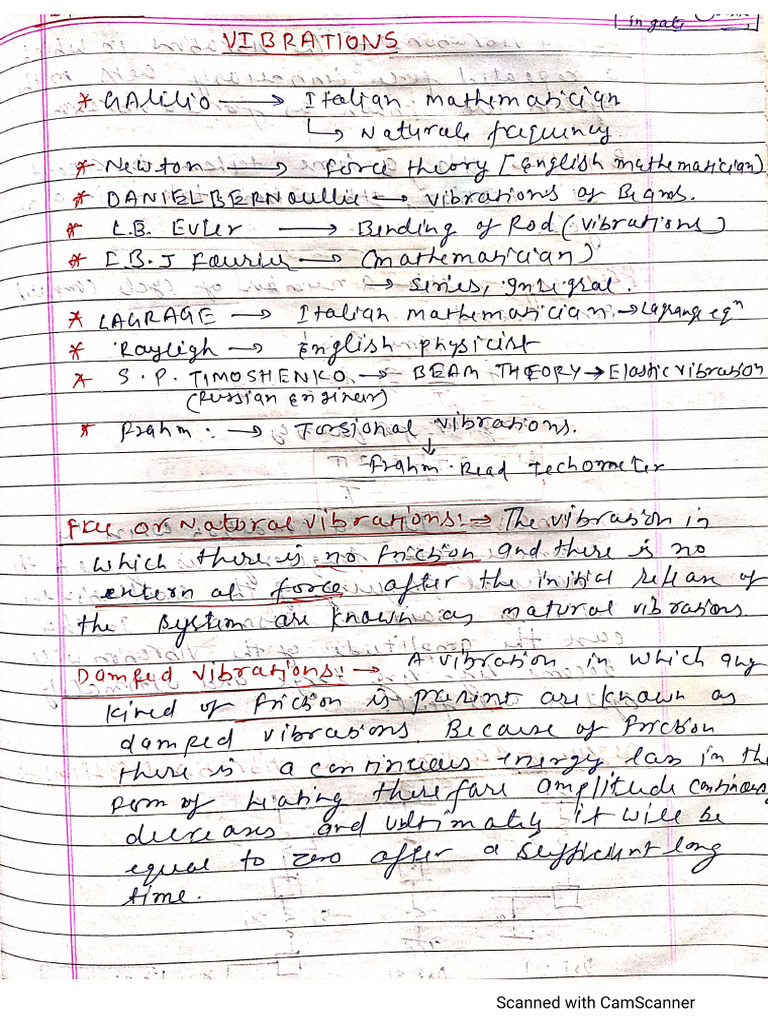 in gate
VIBRATIONS
* GAlilio → Italian mathematician
↳ Natural frequency.
* Newton → force theory [English mathematician)
* DANIEL BERNoullie → vibrations of Beams.
* L.B. Euler → Binding of Rod (vibrations)
* I.B.J Fourier → (mathematician)
→ series, Integral.
* LAGRAGE → Italian mathematician → Lagrange eqn
* Rayleigh → English physicist
* S.P. TIMOSHENKO → BEAM THEORY → Elastic vibration
(Russian Engineer)
* Frahm. → Torsional vibrations.
↓
Frahm. Read techometer
Free or Natural vibrations:→ The vibration in
which there is no friction and there is no
extern al force after the initial release of
the system are known as natural vibrations.
Damped vibrations:→ A vibration in which any
kined of friction is present are known as
damped vibrations. Because of friction
there is a continuous energy loss in the
form of heating therefore amplitude continuous
decreases and ultimately it will be
equal to zero after a sufficient long
time.
Scanned with CamScanner